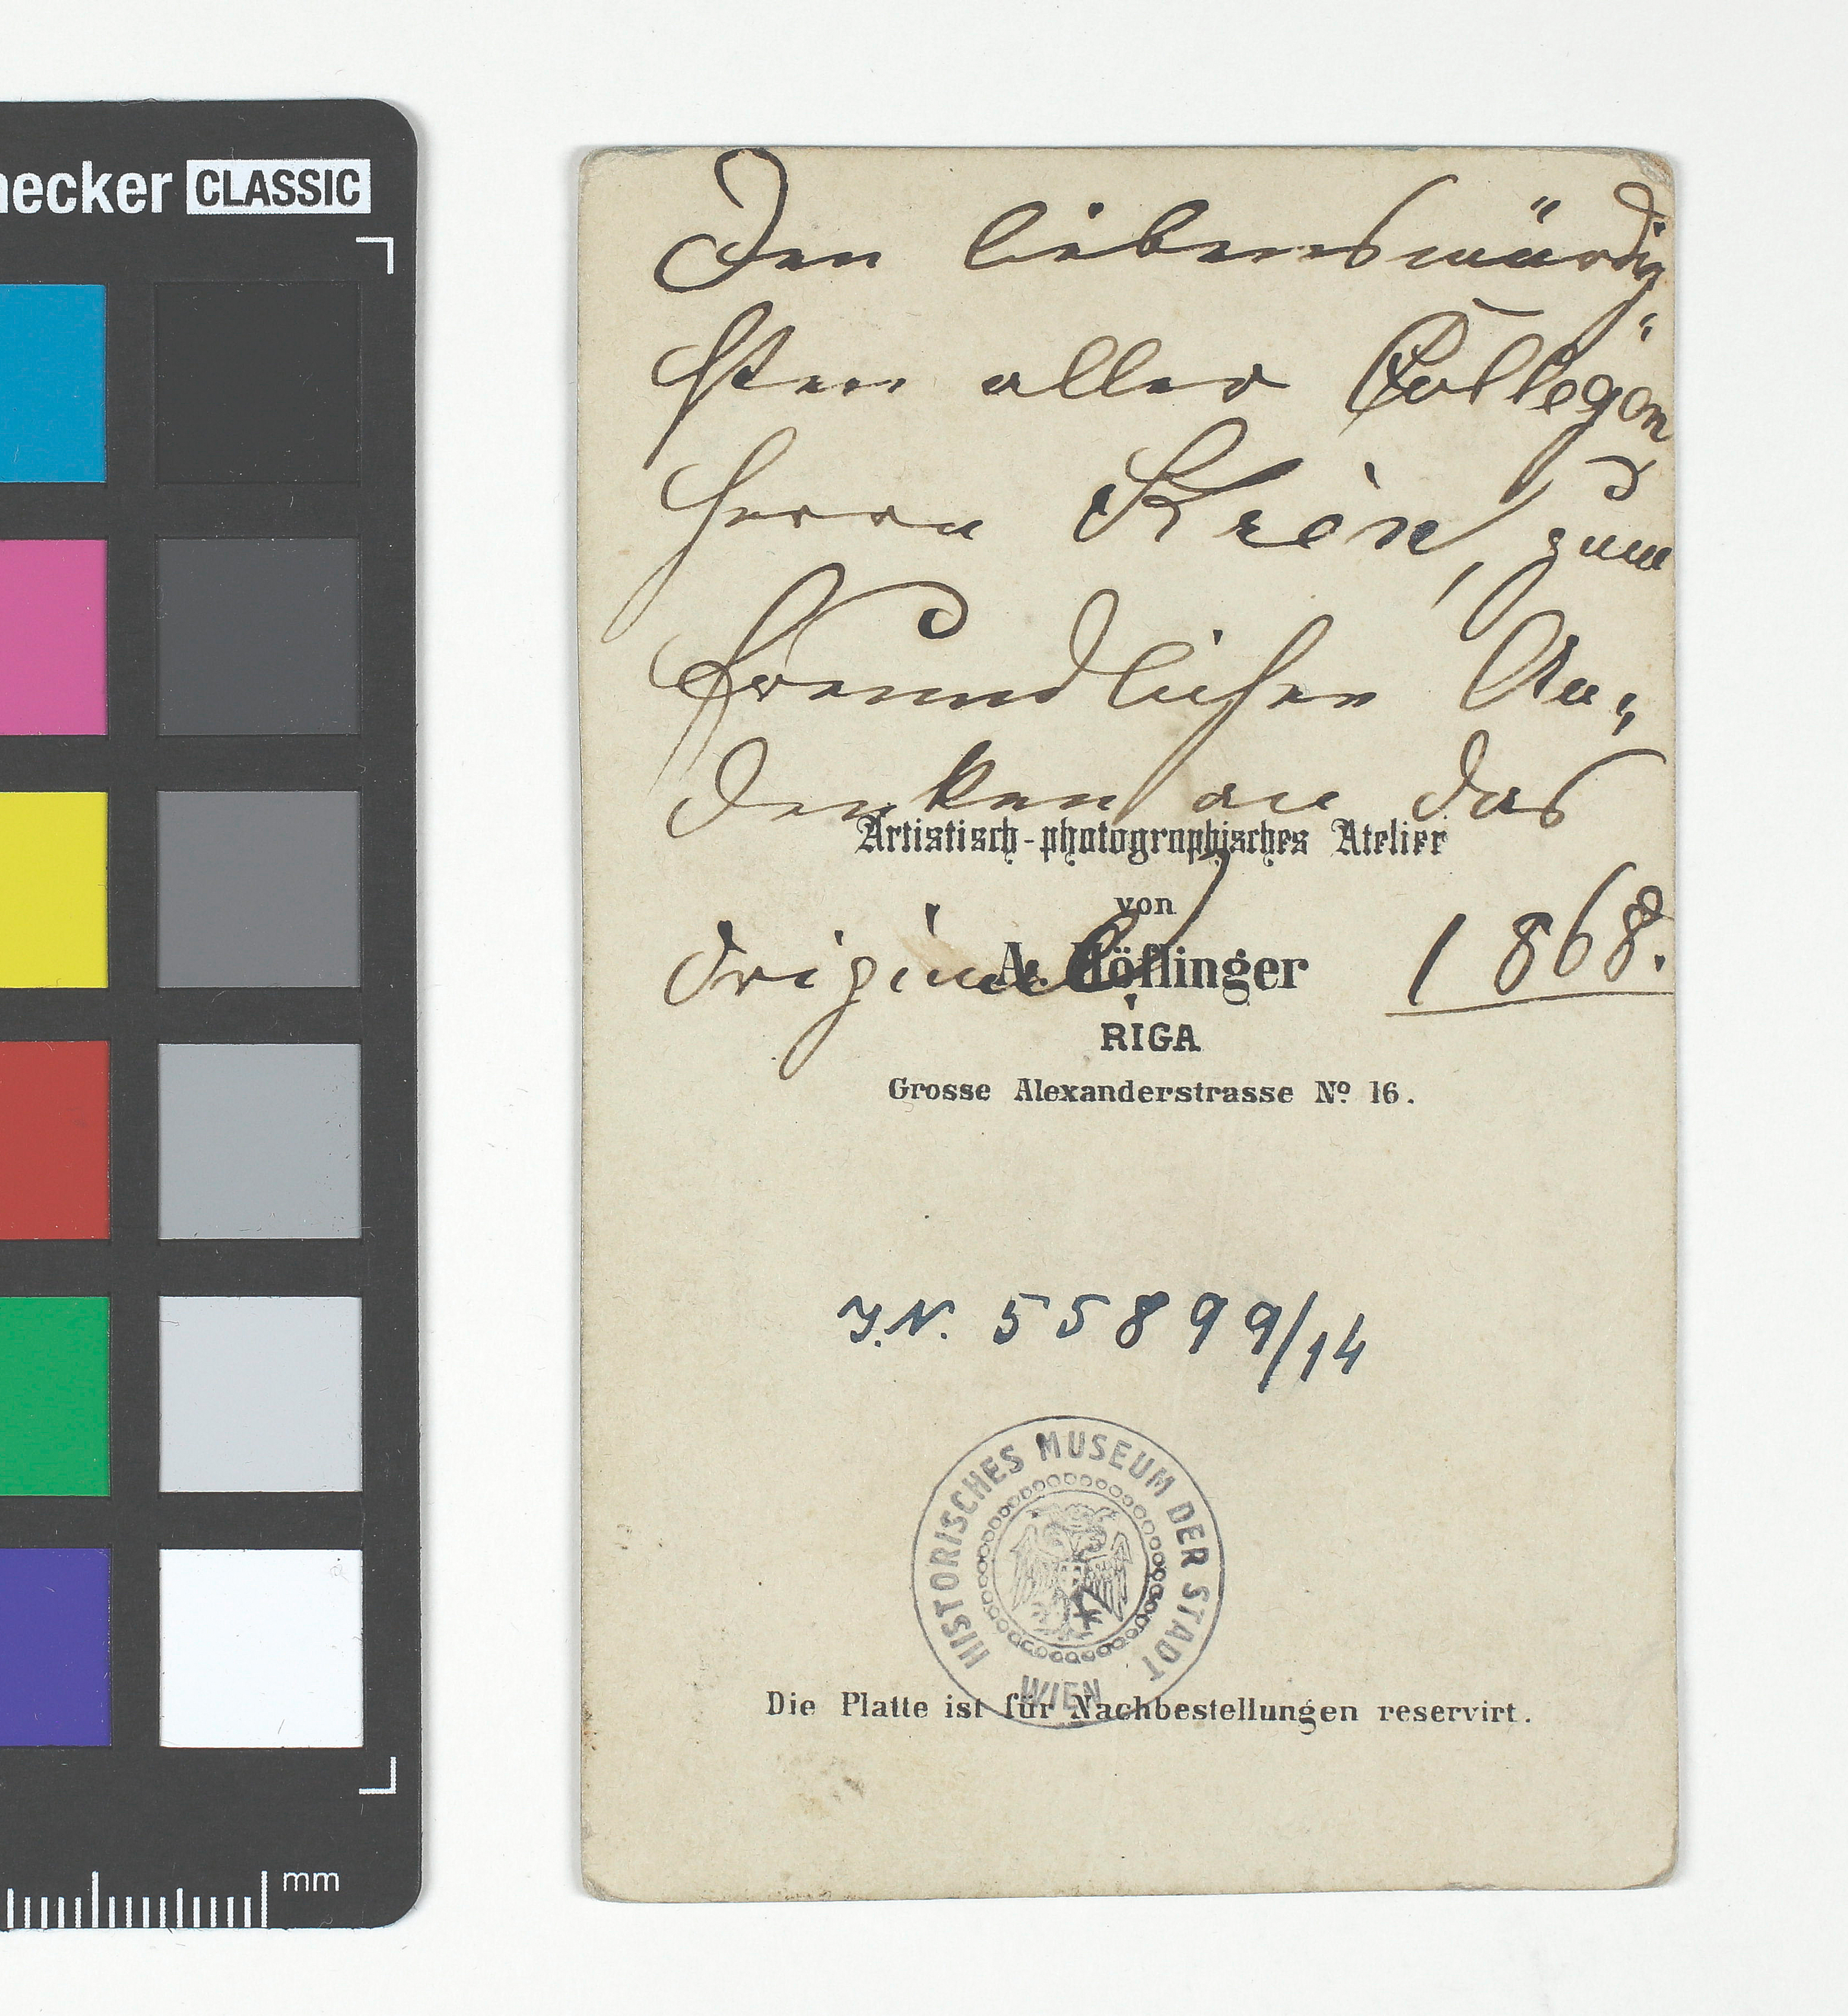 necker CLASSIC
Den liebenswürdig-
sten aller Collegen
Herrn Krén, zum
freundlichen An-
denken an das
Artistisch-photographisches Atelier
von
Original. 1868.
A. Höflinger
RIGA
Grosse Alexanderstrasse Nº 16.
J.N. 55899/14
HISTORISCHES MUSEUM DER STADT
WIEN
Die Platte ist für Nachbestellungen reservirt.
mm